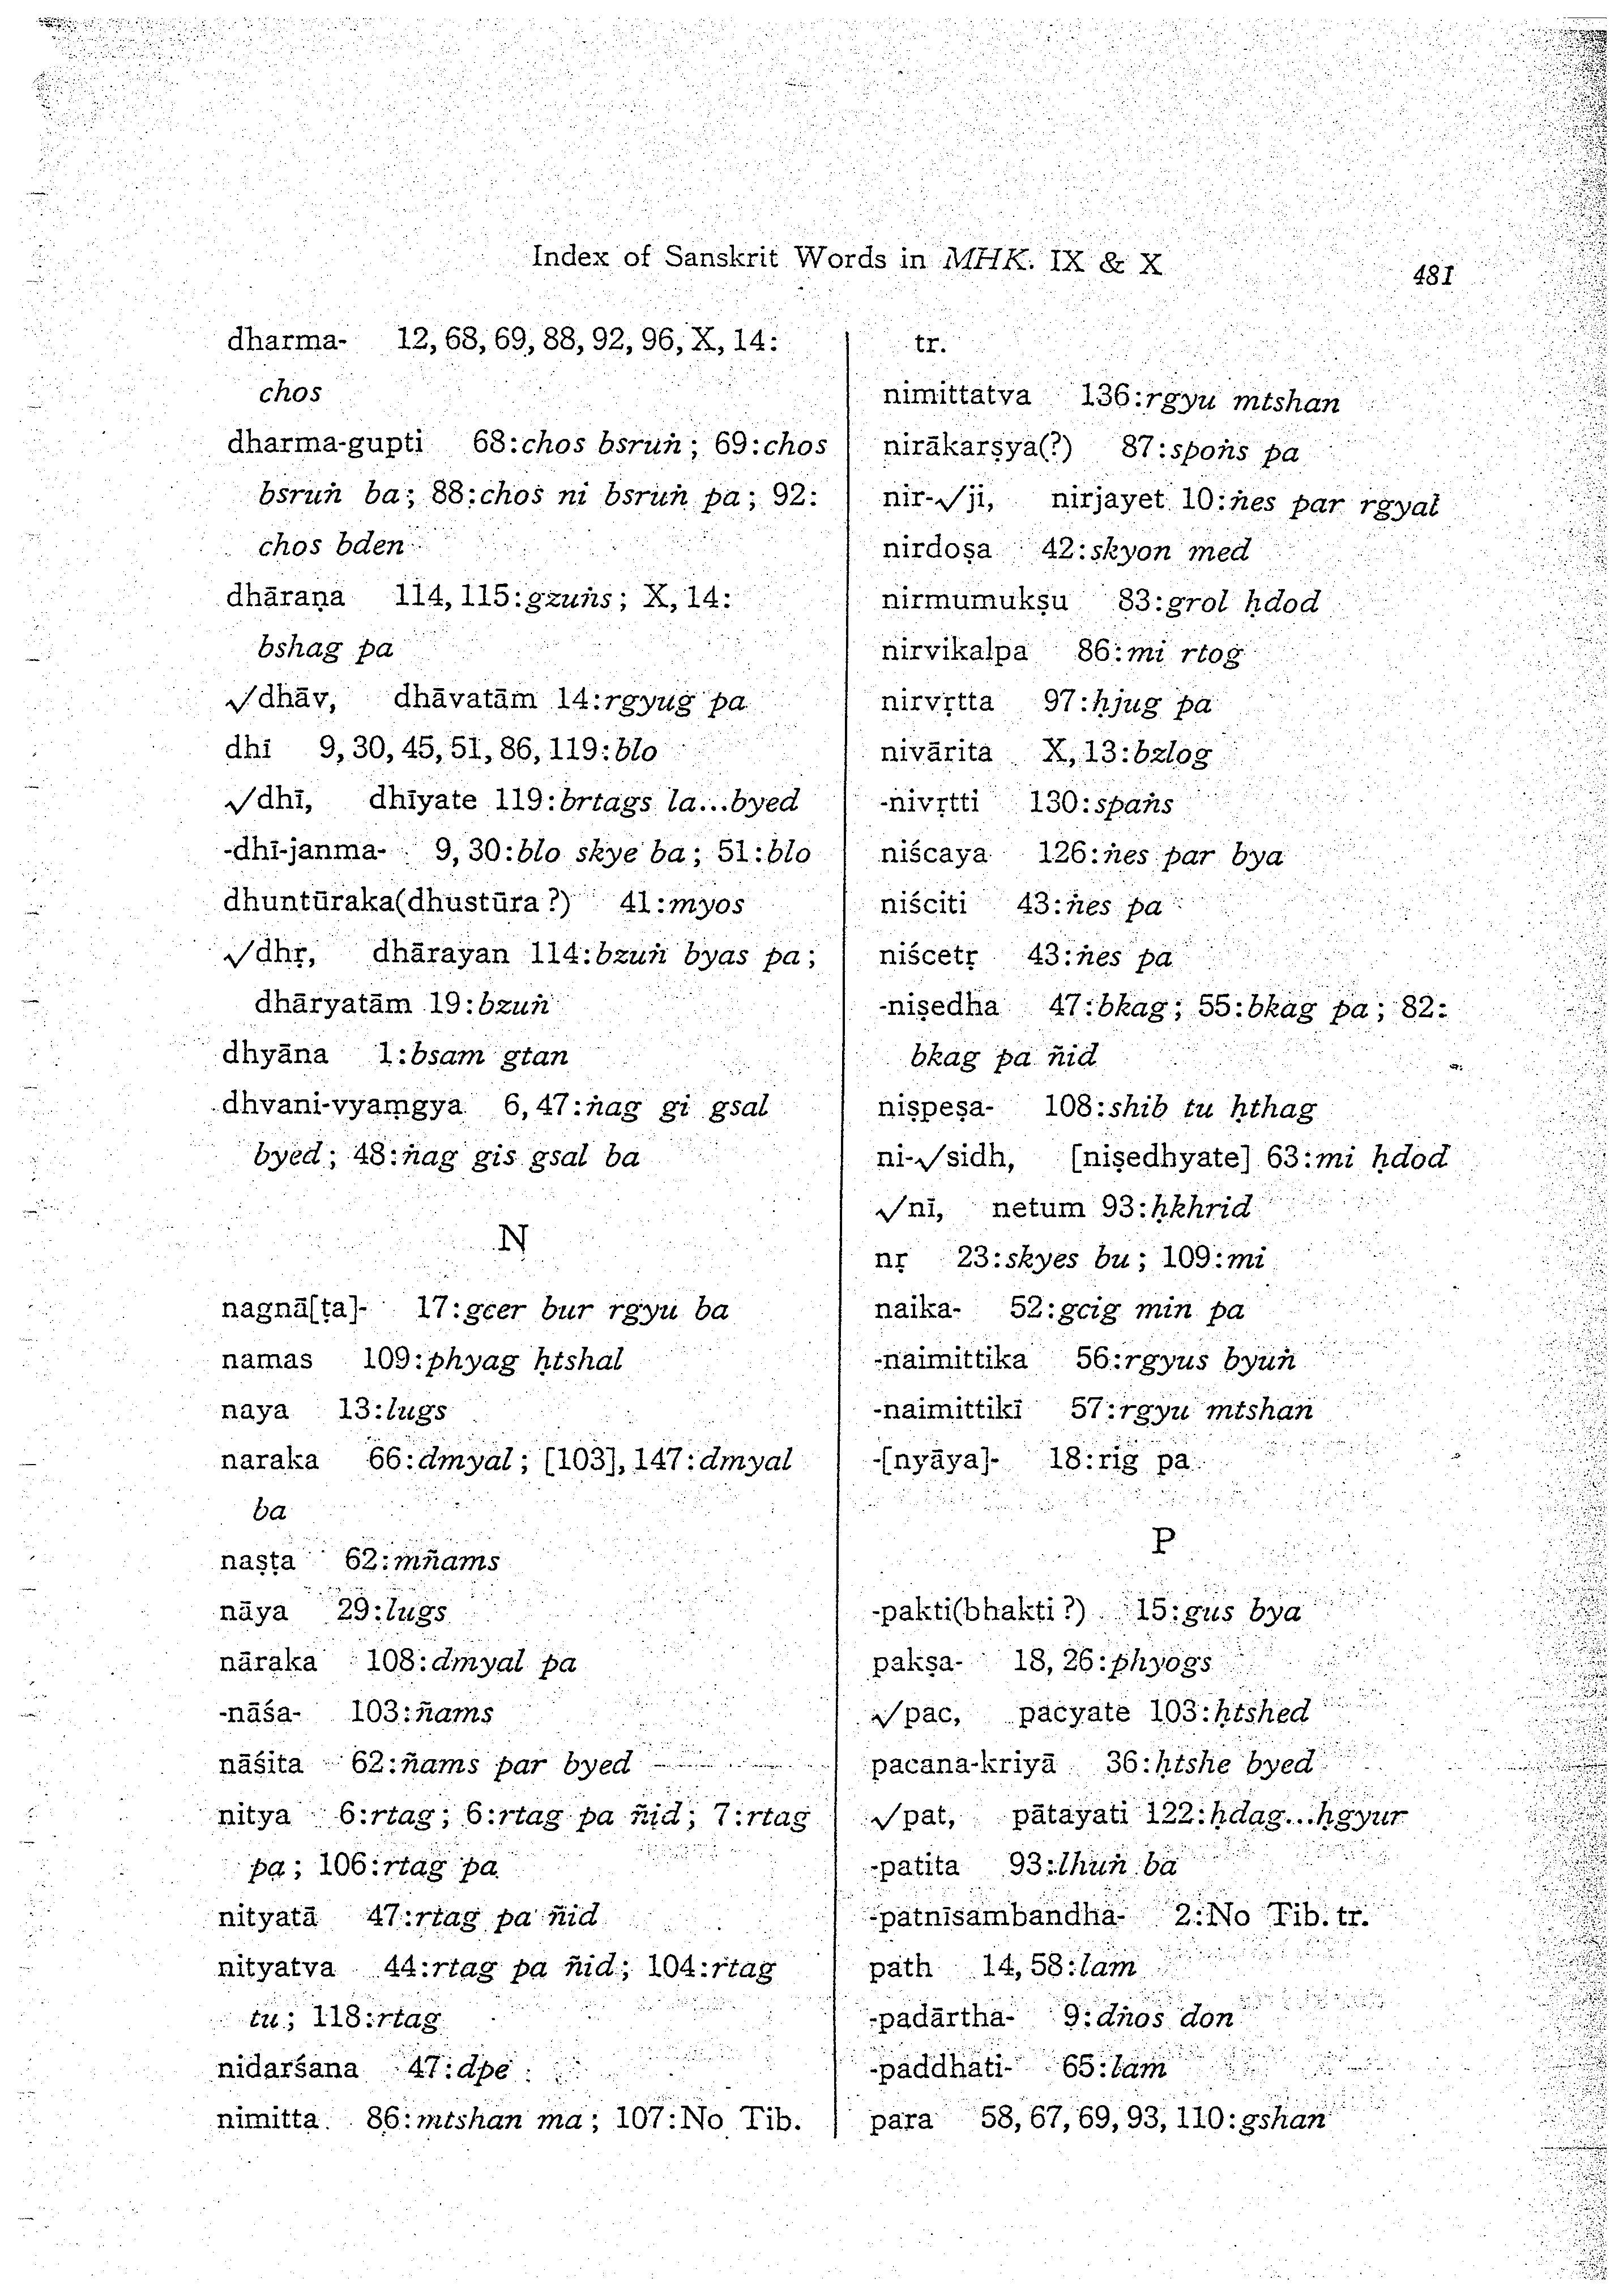 Index of Sanskrit Words in MHK. IX & X
481
dharma- 12, 68, 69, 88, 92, 96, X, 14:
chos
dharma-gupti 68:chos bsruṅ; 69:chos
bsruṅ ba; 88:chos ni bsruṅ pa; 92:
chos bden
dhāraṇa 114, 115:gzuṅs; X, 14:
bshag pa
√dhāv, dhāvatām 14:rgyug pa
dhī 9, 30, 45, 51, 86, 119:blo
√dhī, dhīyate 119:brtags la...byed
-dhī-janma- 9, 30:blo skye ba; 51:blo
dhuntūraka(dhustūra?) 41:myos
√dhṛ, dhārayan 114:bzuṅ byas pa;
dhāryatām 19:bzuṅ
dhyāna 1:bsam gtan
dhvani-vyaṃgya 6, 47:ṅag gi gsal
byed; 48:ṅag gis gsal ba
N
nagnā[ṭa]- 17:gcer bur rgyu ba
namas 109:phyag ḥtshal
naya 13:lugs
naraka 66:dmyal; [103], 147:dmyal
ba
naṣṭa 62:mñams
nāya 29:lugs
nāraka 108:dmyal pa
-nāśa- 103:ñams
nāśita 62:ñams par byed
nitya 6:rtag; 6:rtag pa ñid; 7:rtag
pa; 106:rtag pa
nityatā 47:rtag pa ñid
nityatva 44:rtag pa ñid; 104:rtag
tu; 118:rtag
nidarśana 47:dpe
nimitta 86:mtshan ma; 107:No Tib.
tr.
nimittatva 136:rgyu mtshan
nirākarṣya(?) 87:spoṅs pa
nir-√ji, nirjayet 10:ṅes par rgyal
nirdoṣa 42:skyon med
nirmumukṣu 83:grol ḥdod
nirvikalpa 86:mi rtog
nirvṛtta 97:ḥjug pa
nivārita X, 13:bzlog
-nivṛtti 130:spaṅs
niścaya 126:ṅes par bya
niściti 43:ṅes pa
niścetṛ 43:ṅes pa
-niṣedha 47:bkag; 55:bkag pa; 82:
bkag pa ñid
niṣpeṣa- 108:shib tu ḥthag
ni-√sidh, [niṣedhyate] 63:mi ḥdod
√nī, netum 93:ḥkhrid
nṛ 23:skyes bu; 109:mi
naika- 52:gcig min pa
-naimittika 56:rgyus byuṅ
-naimittikī 57:rgyu mtshan
-[nyāya]- 18:rig pa
P
-pakti(bhakti?) 15:gus bya
pakṣa- 18, 26:phyogs
√pac, pacyate 103:ḥtshed
pacana-kriyā 36:ḥtshe byed
√pat, pātayati 122:ḥdag...ḥgyur
-patita 93:lhuṅ ba
-patnīsambandha- 2:No Tib. tr.
path 14, 58:lam
-padārtha- 9:dṅos don
-paddhati- 65:lam
para 58, 67, 69, 93, 110:gshan